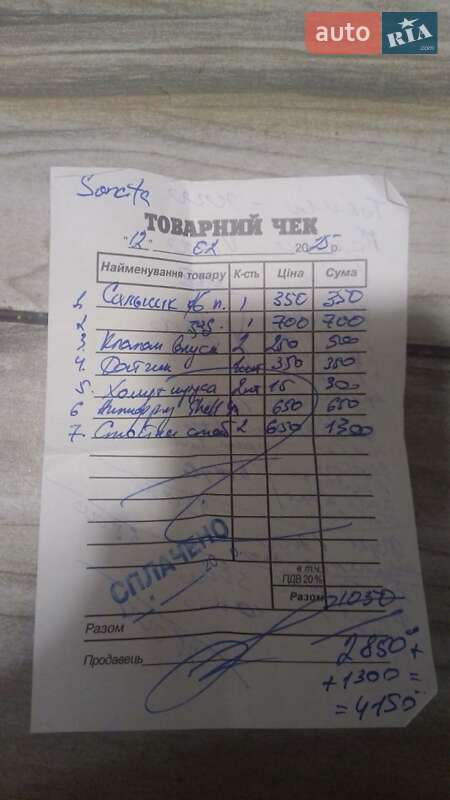 auto RIA.com
Sonata
ТОВАРНИЙ ЧЕК
"12" 02 2025р.
Найменування товару К-сть Ціна Сума
1. Сальник п. 1 350 350
2 зад. 1 700 700
3 Клапан 2 250 500
4. Датчик 350 350
5. Хомут 2шт 15 300
6 Антифриз Shell 650 650
7. Стойки стаб 2 650 1300
в т.ч.
ПДВ 20%
Разом 1050
СПЛАЧЕНО
20 р.
Разом
Продавець
2850+
+1300=
=4150